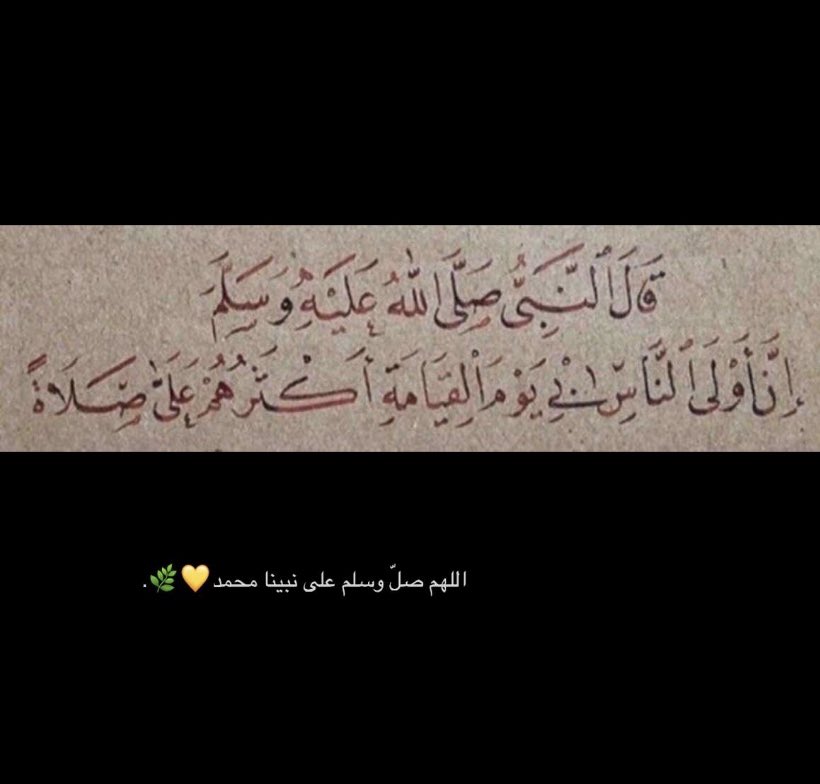 قَالَ ٱلنَّبِىُّ صَلَّى اللّٰهُ عَلَيْهِ وَسَلَّمَ
إِنَّ أَوْلَى ٱلنَّاسِ بِي يَوْمَ ٱلْقِيَامَةِ أَكْثَرُهُمْ عَلَىَّ صَلَاةً
اللهم صلّ وسلم على نبينا محمد💛🌿.